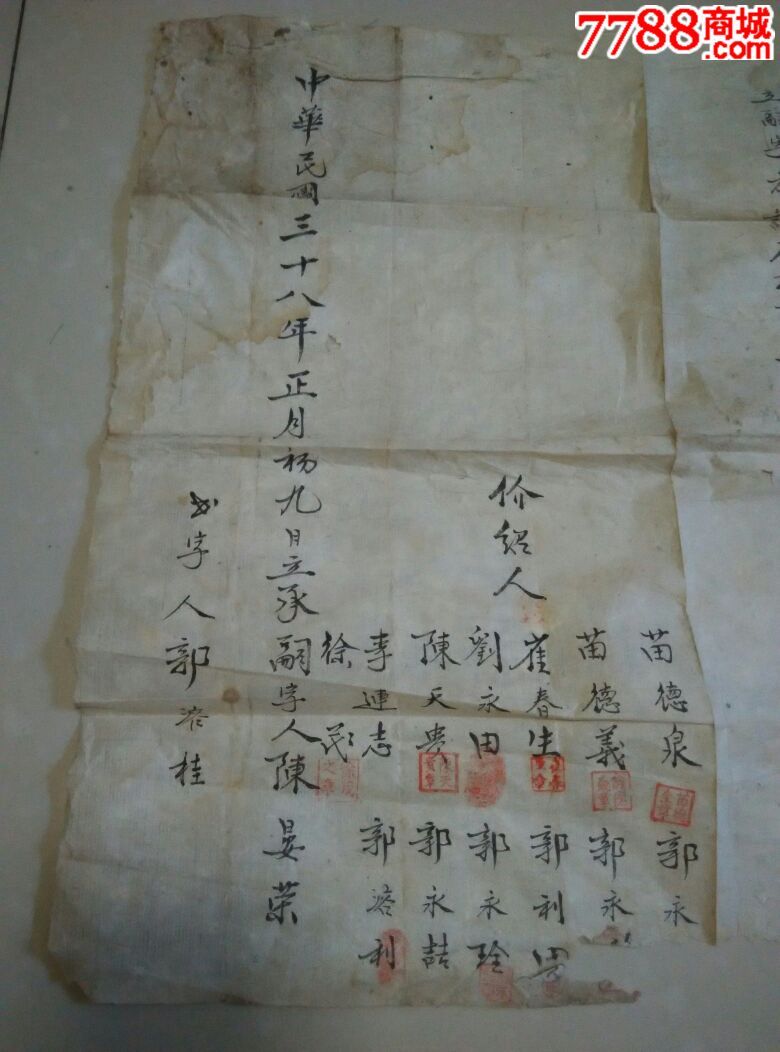 7788商城
.com
立嗣字
价紹人
苗德泉
郭永
苗德義
郭永
崔春生
郭利
劉永田
郭永珍
陳天貴
郭永喆
李連志
郭洛利
徐
中華民國三十八年正月初九日立承嗣字人陳晏荣
字人郭洛桂